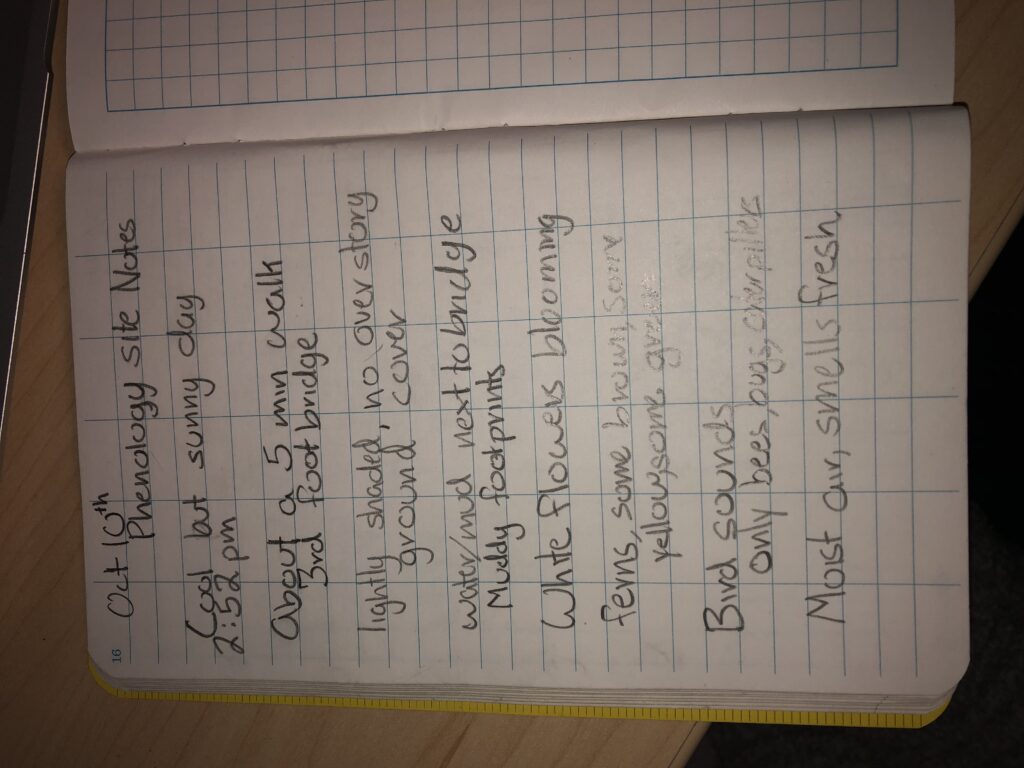 16
Oct 10th
Phenology site Notes
Cool but sunny day
2:52 pm
About a 5 min walk
3rd footbridge
lightly shaded, no over story
ground cover
water/mud next to bridge
Muddy footprints
White flowers blooming
ferns, some brown, some
yellow, some green
Bird sounds
only bees, bugs, caterpillars
Moist air, smells fresh